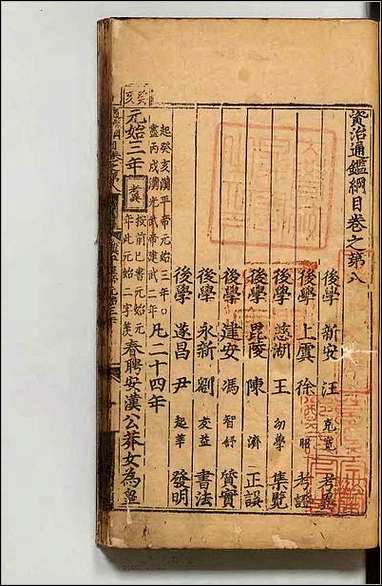 資治通鑑綱目卷之第八
後學 新安 汪 克寬 考異
後學 上虞 徐 昭 考證
後學 慈湖 王 幼學 集覽
後學 毘陵 陳 濟 正誤
後學 建安 馮 智舒 質實
後學 永新 劉 友益 書法
後學 遂昌 尹 起莘 發明
起癸亥漢平帝元始三年○
盡丙戌漢光武帝建武二年
凡二十四年
癸亥
元始三年
考異
按前已書元始元
年此元始二字漢
春聘安漢公莽女為皇